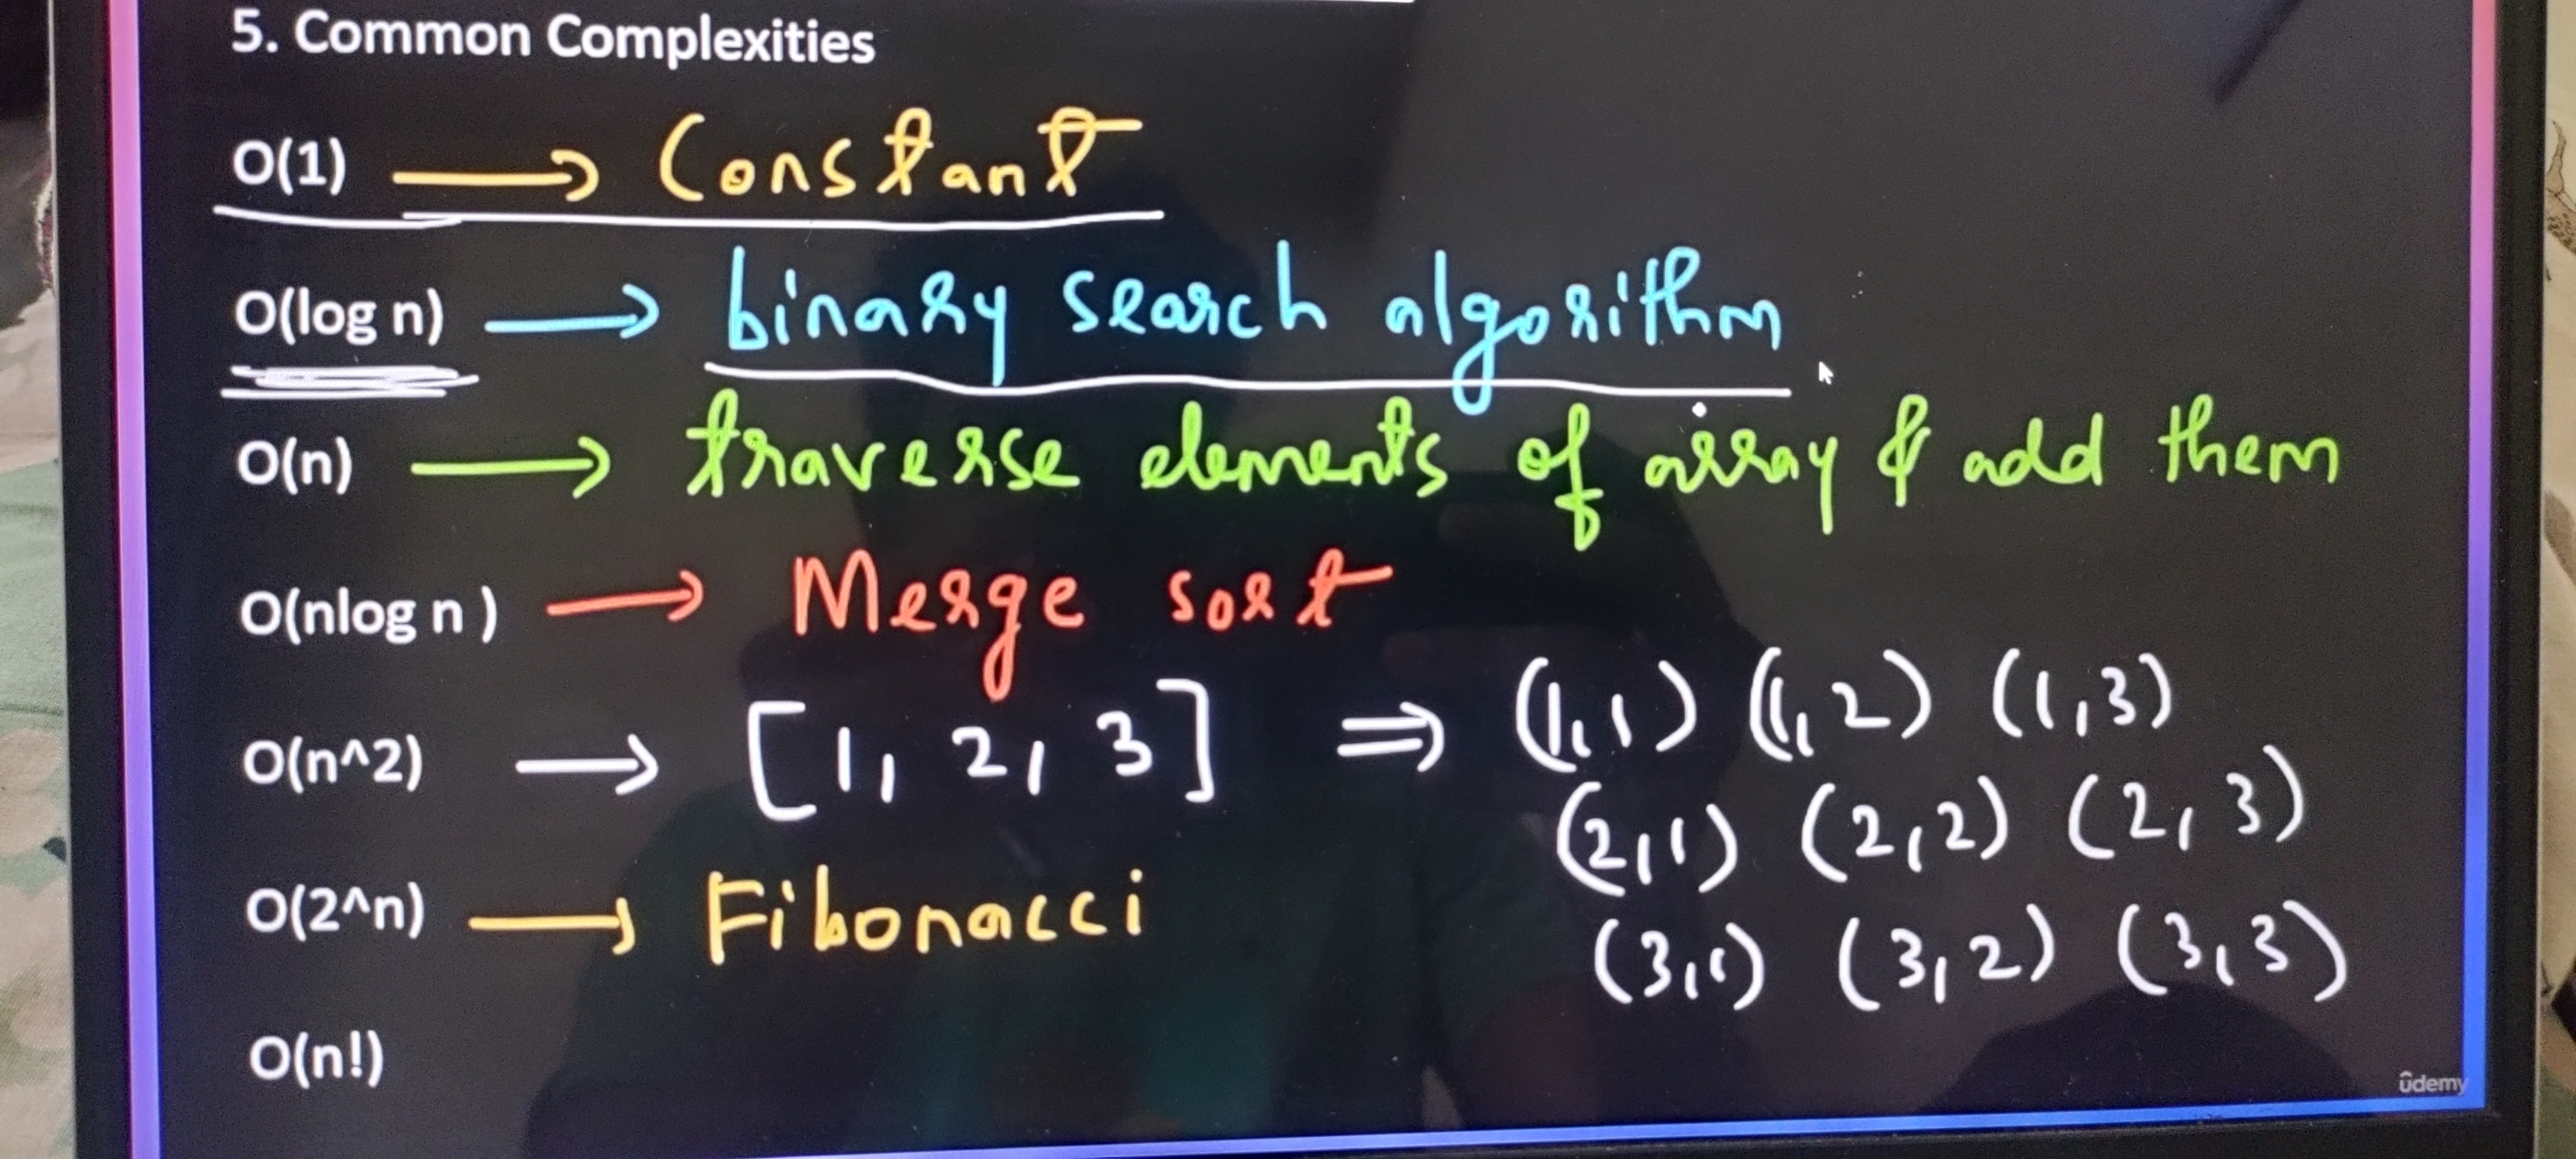 5. Common Complexities
O(1) → Constant
O(log n) → binary search algorithm
O(n) → traverse elements of array & add them
O(nlog n ) → Merge sort
O(n^2) → [1, 2, 3] ⇒ (1,1) (1,2) (1,3)
(2,1) (2,2) (2,3)
(3,1) (3,2) (3,3)
O(2^n) → Fibonacci
O(n!)
ûdemy